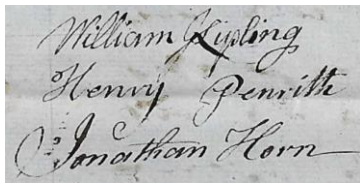 William Kipling
Henry Penrith
Jonathan Horn